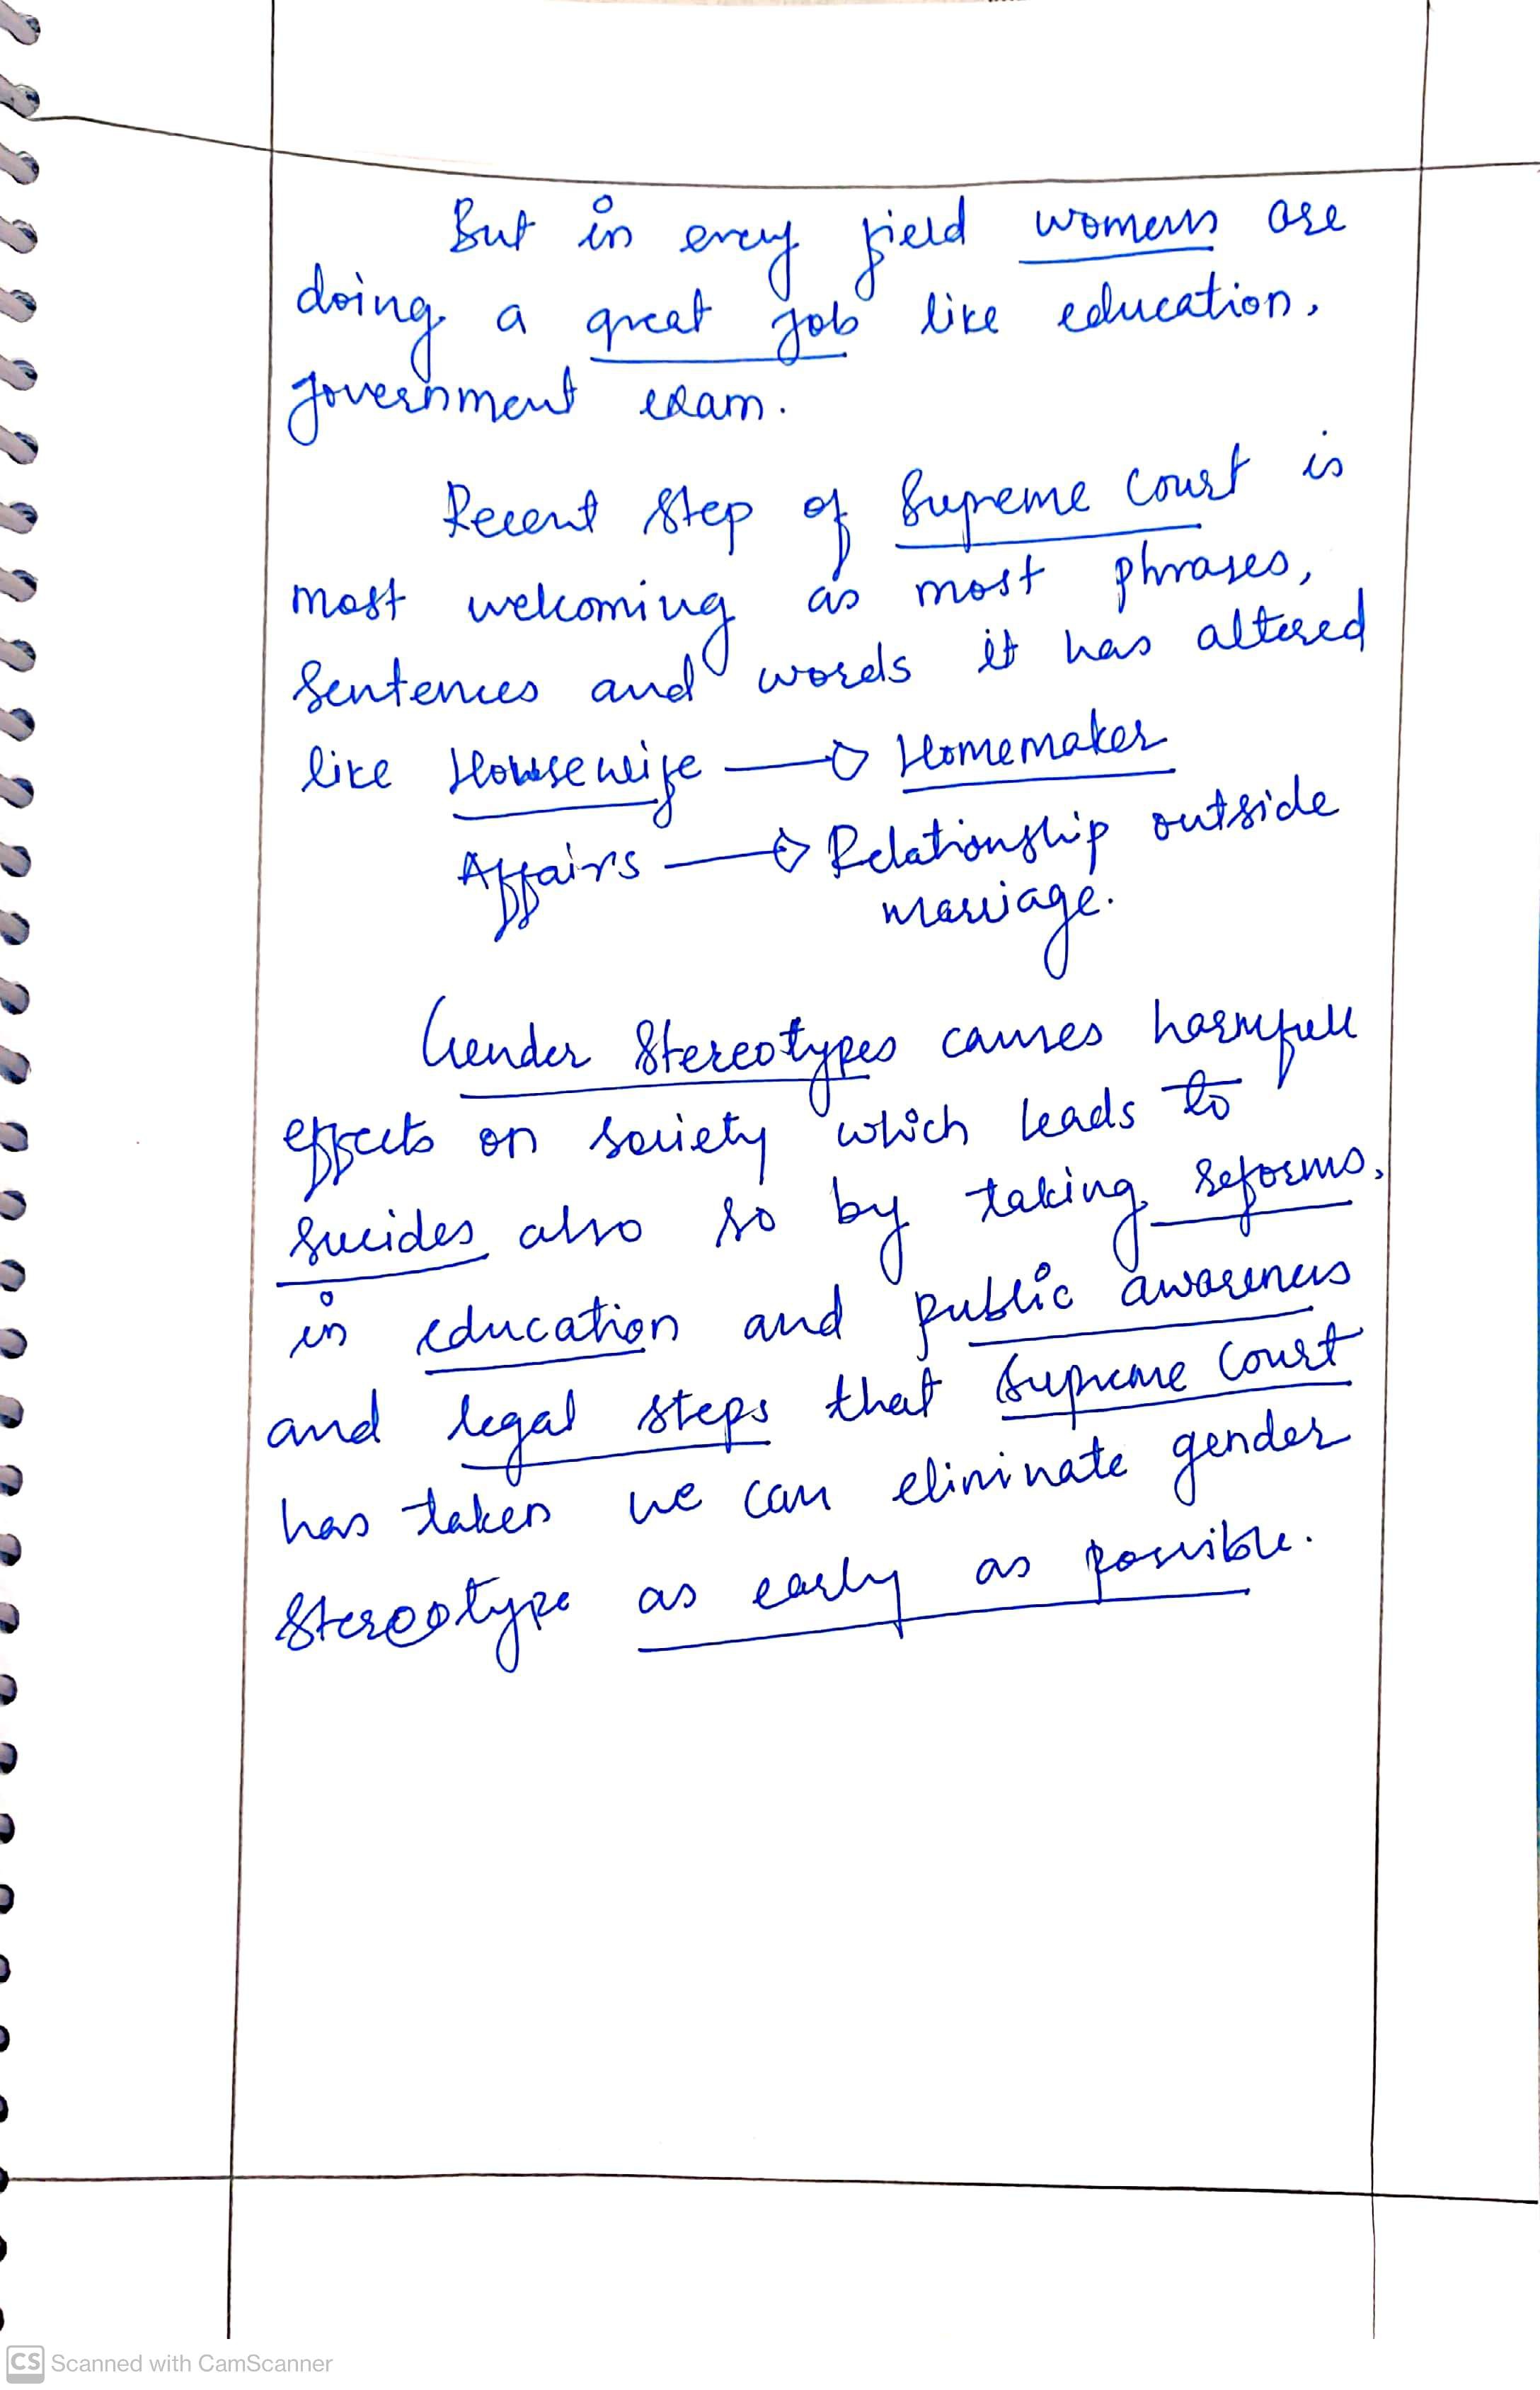 But in every field womens are
doing a great job like education,
government exam.
Recent step of Supreme Court is
most welcoming as most phrases,
sentences and words it has altered
like Housewife → Homemaker
Affairs → Relationship outside
marriage.
Gender Stereotypes causes harmfull
effects on society which leads to
sucides also so by taking reforms,
in education and public awareness
and legal steps that Supreme Court
has taken we can elininate gender
stereotype as early as possible.
CS Scanned with CamScanner